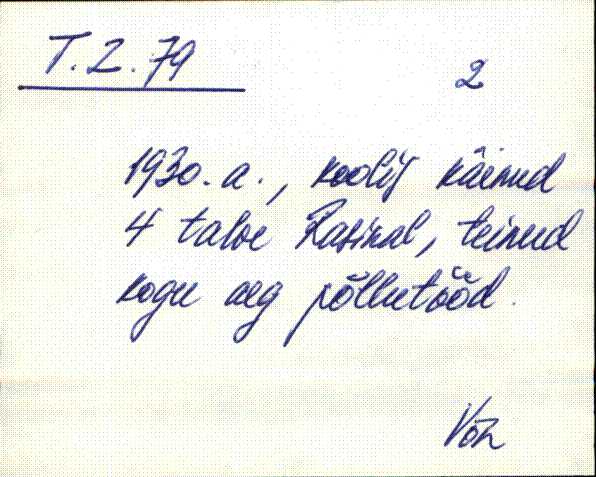 T. Z. 79
2
1930. a., koolis käinud
4 talve Rasinal, teinud
kogu aeg põllutööd.